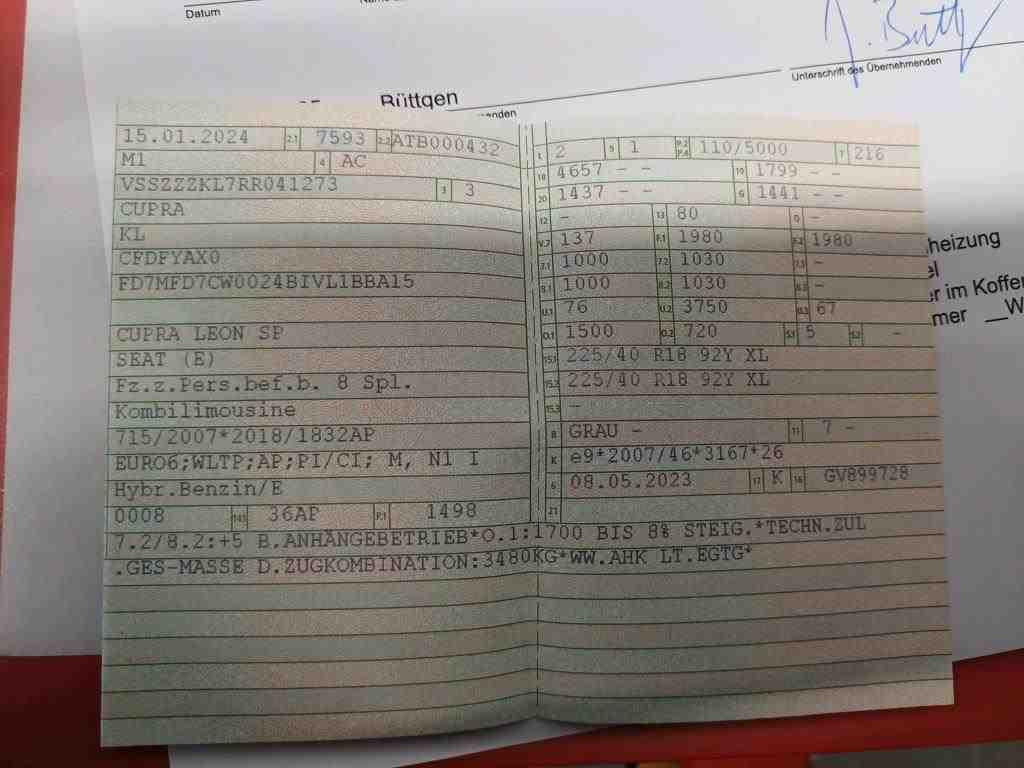 Datum
Unterschrift des Übernehmenden
Büttgen
15.01.2024 2.1 7593 2.2 ATB000432
M1 4 AC
VSSZZZKL7RR041273 3 3
CUPRA
KL
CFDFYAX0
FD7MFD7CW0024BIVL1BBA15
CUPRA LEON SP
SEAT (E)
Fz.z.Pers.bef.b. 8 Spl.
Kombilimousine
715/2007*2018/1832AP
EURO6;WLTP;AP;PI/CI; M, N1 I
Hybr.Benzin/E
0008 14.1 36AP P.1 1498
L 2 9 1 P.2 P.4 110/5000 T 216
18 4657 - - 19 1799 - -
20 1437 - - G 1441 - -
12 - 13 80 Q -
V.7 137 F.1 1980 F.2 1980
7.1 1000 7.2 1030 7.3 -
8.1 1000 8.2 1030 8.3 -
U.1 76 U.2 3750 U.3 67
O.1 1500 O.2 720 S.1 5 S.2 -
15.1 225/40 R18 92Y XL
15.2 225/40 R18 92Y XL
15.3 -
R GRAU - 11 7 -
K e9*2007/46*3167*26
6 08.05.2023 17 K 16 GV899728
21
7.2/8.2:+5 B.ANHÄNGEBETRIEB*O.1:1700 BIS 8% STEIG.*TECHN.ZUL
.GES-MASSE D.ZUGKOMBINATION:3480KG*WW.AHK LT.EGTG*
heizung
el
er im Koffer
mer __W